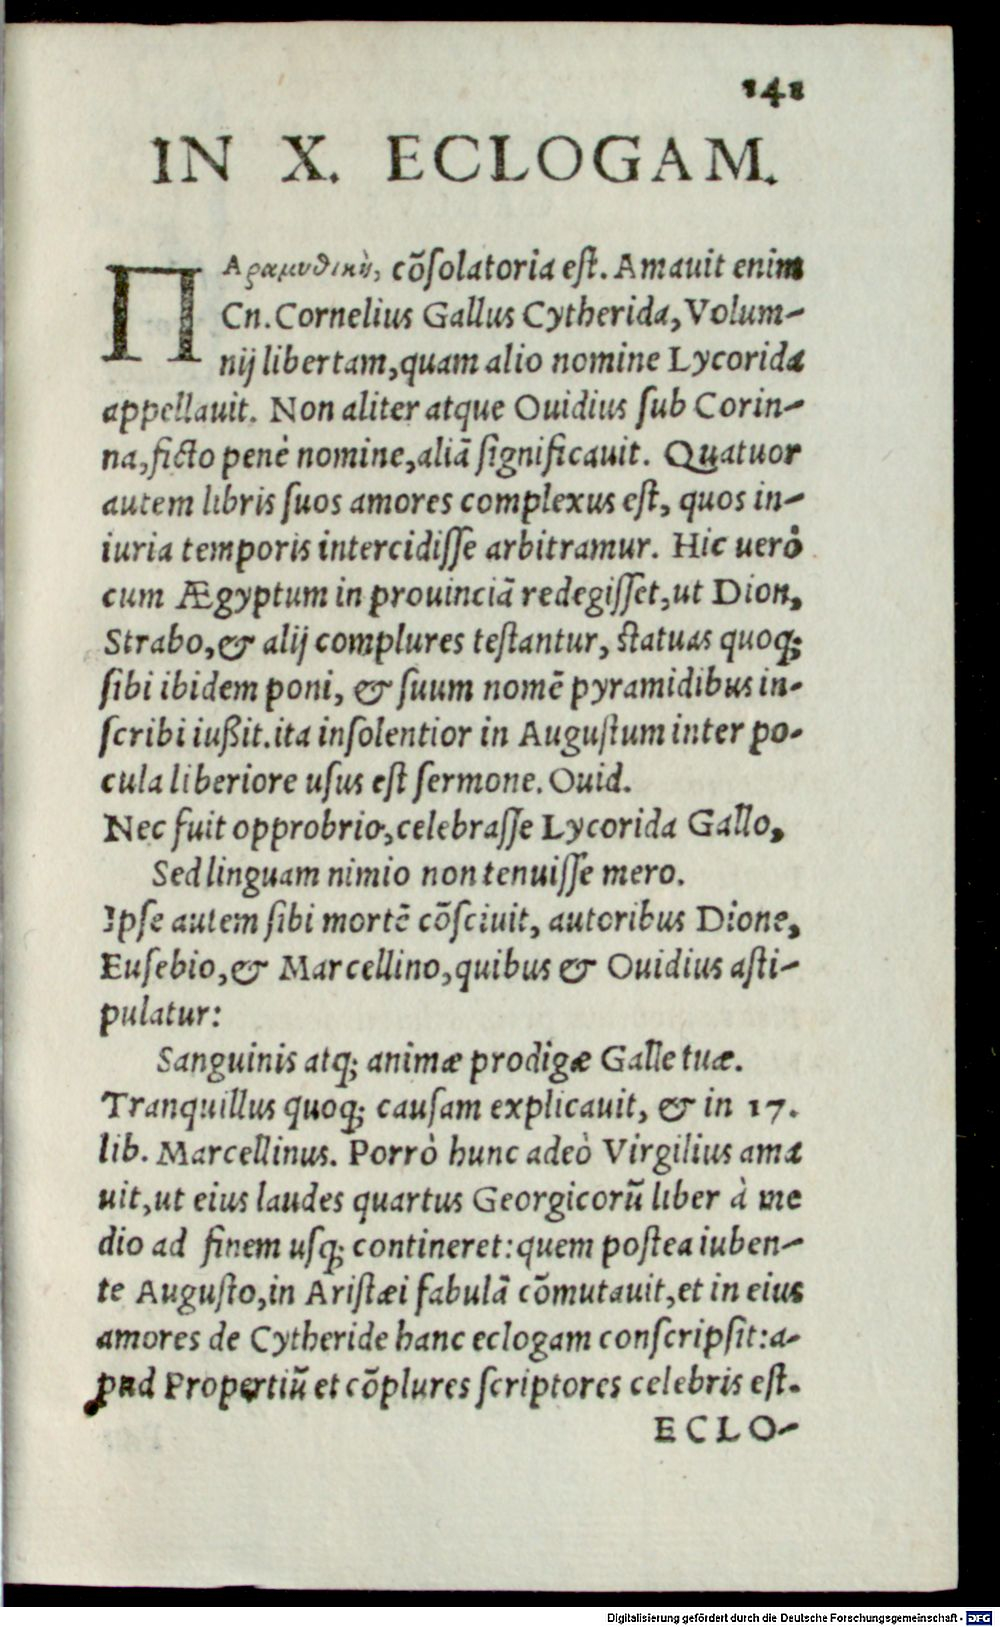 141
IN X. ECLOGAM.
ΠΑραμυθικὴ, cõsolatoria est. Amauit enim
Cn. Cornelius Gallus Cytherida, Volum-
nij libertam, quam alio nomine Lycorida
appellauit. Non aliter atque Ouidius sub Corin-
na, ficto penè nomine, aliã significauit. Quatuor
autem libris suos amores complexus est, quos in-
iuria temporis intercidisse arbitramur. Hic uerò
cum Ægyptum in prouinciã redegisset, ut Dion,
Strabo, & alij complures testantur, statuas quoq;
sibi ibidem poni, & suum nomẽ pyramidibus in-
scribi iußit. ita insolentior in Augustum inter po-
cula liberiore usus est sermone. Ouid.
Nec fuit opprobrio, celebrasse Lycorida Gallo,
Sed linguam nimio non tenuisse mero.
Ipse autem sibi mortẽ cõsciuit, autoribus Dione,
Eusebio, & Marcellino, quibus & Ouidius asti-
pulatur:
Sanguinis atq; animæ prodigæ Galle tuæ.
Tranquillus quoq; causam explicauit, & in 17.
lib. Marcellinus. Porrò hunc adeò Virgilius ama
uit, ut eius laudes quartus Georgicorũ liber à me
dio ad finem usq; contineret: quem postea iuben-
te Augusto, in Aristæi fabulã cõmutauit, et in eius
amores de Cytheride hanc eclogam conscripsit: a-
pud Propertiũ et cõplures scriptores celebris est.
ECLO-
Digitalisierung gefördert durch die Deutsche Forschungsgemeinschaft - DFG